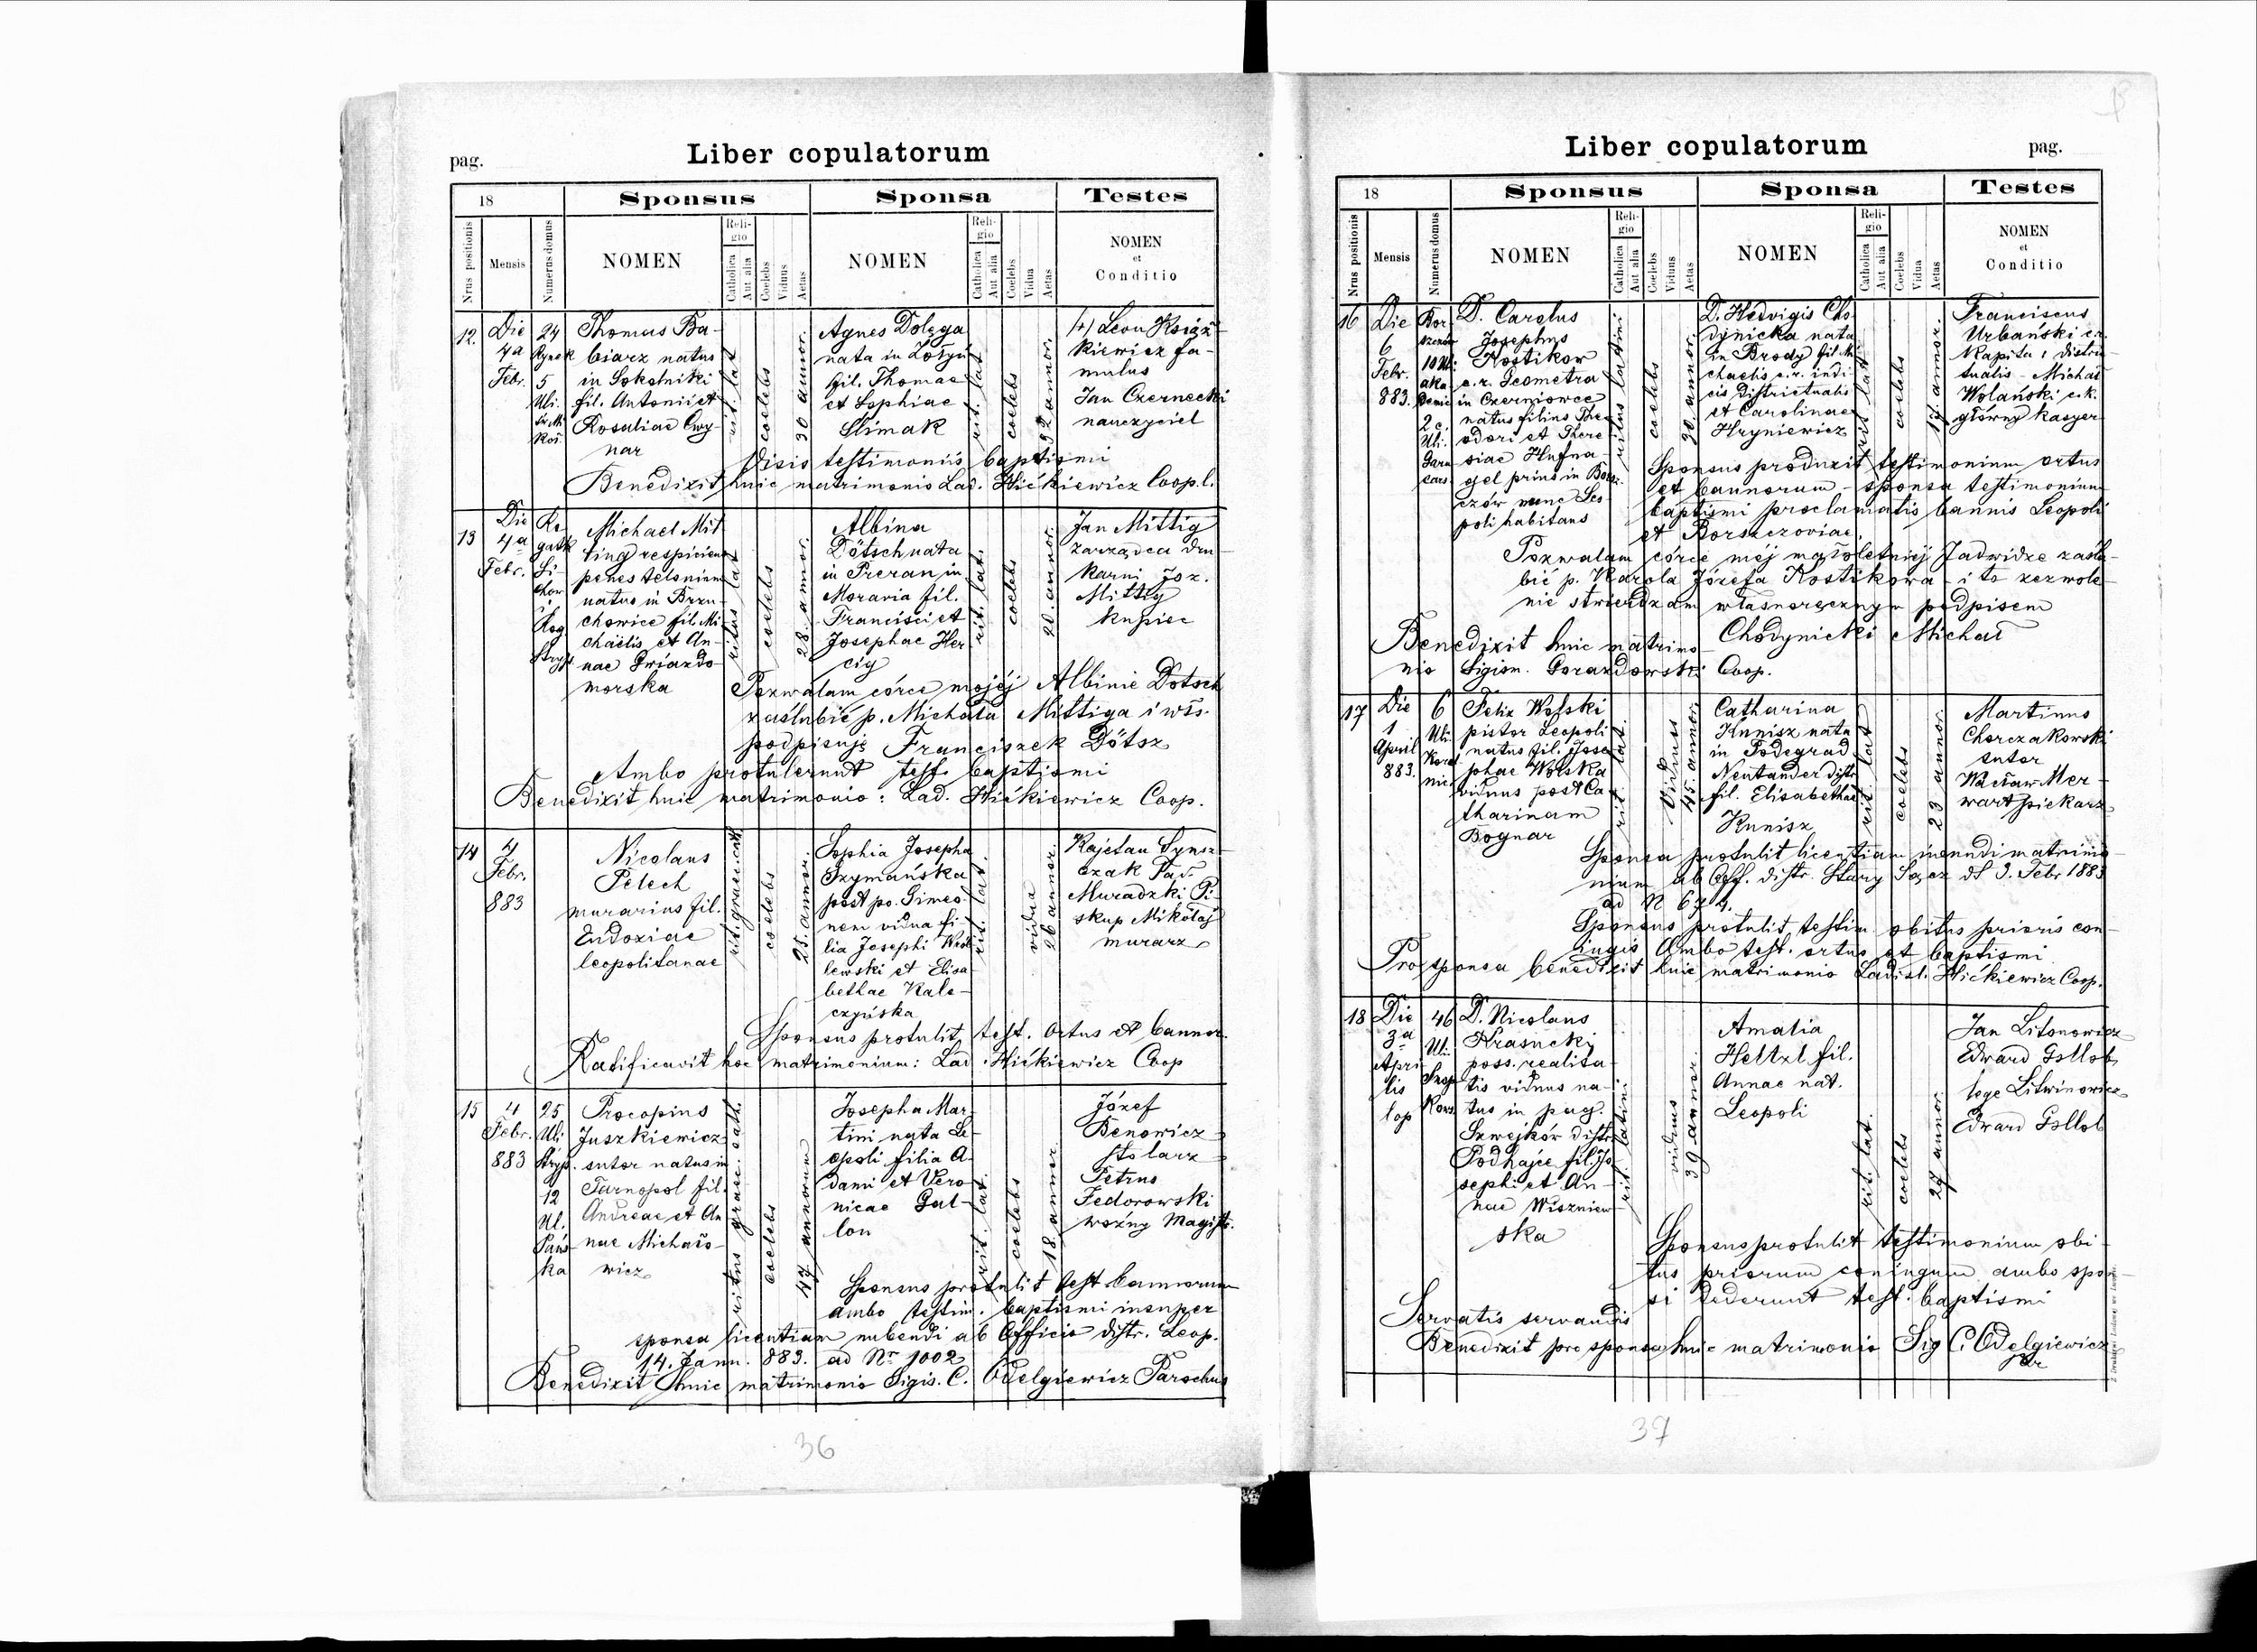 Liber copulatorum
pag.
18
Sponsus
Sponsa
Testes
Nrus positionis
Mensis
Numerus domus
NOMEN
Religio
Catholica
Aut alia
Coelebs
Viduus
Aetas
NOMEN
Religio
Catholica
Aut alia
Coelebs
Vidua
Aetas
NOMEN
et
Conditio
12.
Die
4a
Febr.
24
Rynek
5
Uli.
Thomas Ba-
biarz natus
in Sokolniki
fil. Antonii et
Rosaliae Cwy-
nar
rit. lat
coelebs
30 annor.
Agnes Dołęga
nata in
fil. Thomae
et Sophiae
Ślimak
rit. lat
coelebs
32 annor.
Leon Książ-
kiewicz fa-
mulus
Jan Czernecki
nauczyciel
Visis testimoniis baptismi
Benedixit huic matrimonio Lad. Hićkiewicz Coop.
13
Die
4a
Febr.
Michael Mit
ting respiciens
penes telonium
natus in Brzu-
chowice fil. Mi-
chaelis et An-
nae Gwiazdo-
morska
ritus lat
coelebs
28. annor.
Albina
Dötsch nata
in Preran in
Moravia fil.
Francisci et
Josephae Her
cig
rit. lat.
coelebs
20. annor.
Jan Mittig
zarządca dru-
karni Joz.
Mittig
kupiec
Pozwalam córce mojéj Albinie Dötsch
zaślubić p. Michała Mittiga i włs.
podpisuję Franciszek Dötsz
Ambo protulerunt test. baptismi
Benedixit huic matrimonio: Lad. Hićkiewicz Coop.
14
4
Febr.
883
Nicolaus
Pelech
murarius fil.
Eudoxiae
leopolitanae
rit. graec. cath
coelebs
25. annor.
Sophia Josepha
Szymańska
post po. Simeo-
nem vidua fi-
lia Josephi
lewski et Elisa
bethae Kale-
czyńska
rit. lat.
vidua
26 annor.
Kajetan Symsz-
czak
Muradzki Pi-
skup Mikołaj
murarz
Sponsus protulit test. ortus et bannor.
Ratificavit hoc matrimonium: Lad. Hićkiewicz Coop
15
4
Febr.
883
25
Uli
Stryj.
12
Ul.
Pańs-
ka
Procopius
Juszkiewicz
sutor natus in
Tarnopol fil.
Andreae et An
nae Michało-
wicz
ritus graec. cath.
coelebs
47 annorum
Josepha Mar-
tini nata Le-
opoli filia A-
dami et Vero-
nicae Gal-
lon
rit. lat.
coelebs
18 annor.
Józef
Benowicz
stolarz
Petrus
Fedorowski
woźny Magist.
Sponsus protulit test bannorum
ambo testim. baptismi insuper
sponsa licentiam nubendi ab Officio distr. Leop.
14. Jann. 883. ad Nr 1002
Benedixit huic matrimonio Sigis. C. Odelgiewicz Parochus
36
Liber copulatorum
pag.
18
Sponsus
Sponsa
Testes
Nrus positionis
Mensis
Numerus domus
NOMEN
Religio
Catholica
Aut alia
Coelebs
Viduus
Aetas
NOMEN
Religio
Catholica
Aut alia
Coelebs
Vidua
Aetas
NOMEN
et
Conditio
16
Die
6
Febr.
883.
D. Carolus
Josephus
Kostikow
c. r. Geometra
in Czerniowce
natus filius The
odori et There
siae Hufna-
gel prius in Borsz-
czów nunc Leo
poli habitans
ritus latini
coelebs
30. annor.
D. Hedvigis Cho
dynicka nata
in Brody fil. Mi
chaelis c. r. indi-
cis Districtualis
et Carolinae
Hryniewicz
rit. lat
coelebs
17. annor.
Franciscus
Urbański cr.
Kapita: distri-
tualis - Michał
Wolański c. k.
główny kasyer
Sponsus produxit testimonium ortus
et bannorum - sponsa testimonium
baptismi proclamatis bannis Leopoli
et Borszczoviae.
Pozwalam córce méj małoletniéj Jadwidze zaślu-
bić p. Karola Józefa Kostikowa - i to zezwole-
nie stwierdzam własnoręcznym podpisem
Chodynicki Michał
Benedixit huic matrimo-
nio Sigism. Gorazdowski Coop.
17
Die
1
April
883.
6
Uli.
Felix Wolski
pistor Leopoli
natus fil. Jose
phae Wolska
viduus post Ca
tharinam
Bognar
rit. lat.
viduus
45. annor.
Catharina
Kunisz nata
in Podegrad
Neutander distr
fil. Elisabethae
Kunisz
rit. lat
coelebs
23 annor.
Martinus
Chorczakowski
sutor
Wacław Mer-
wart piekarz
Sponsa protulit licentiam ineundi matrimo-
nium ab Off. distr. Stary Sącz dt 3. Febr 1883
ad N 674.
Sponsus protulit testim obitus prioris con-
iugis Ambo test. ortus et baptismi
Pro sponsa benedixit huic matrimonio Ladisl. Hićkiewicz Coop.
18
Die
3a
Apri-
lis
46
Uli.
D. Nicolaus
Krasucki
poss. realita-
tis viduus na-
tus in pag.
Szwejków distr
Podhajce fil. Jo
sephi et An-
nae Wiszniew
ska
rit. latini
viduus
39 annor.
Amalia
Heltzl fil.
Annae nat.
Leopoli
rit. lat.
coelebs
27 annor.
Jan Litonowicz
Edward Gollob
lege Litwinowicz
Edward Gollob
Sponsus protulit testimonium obi-
tus priorum coniugum ambo spon-
si dederunt test. baptismi
Servatis servandis
Benedixit pro sponsa huic matrimonio Sig C. Odelgiewicz
37